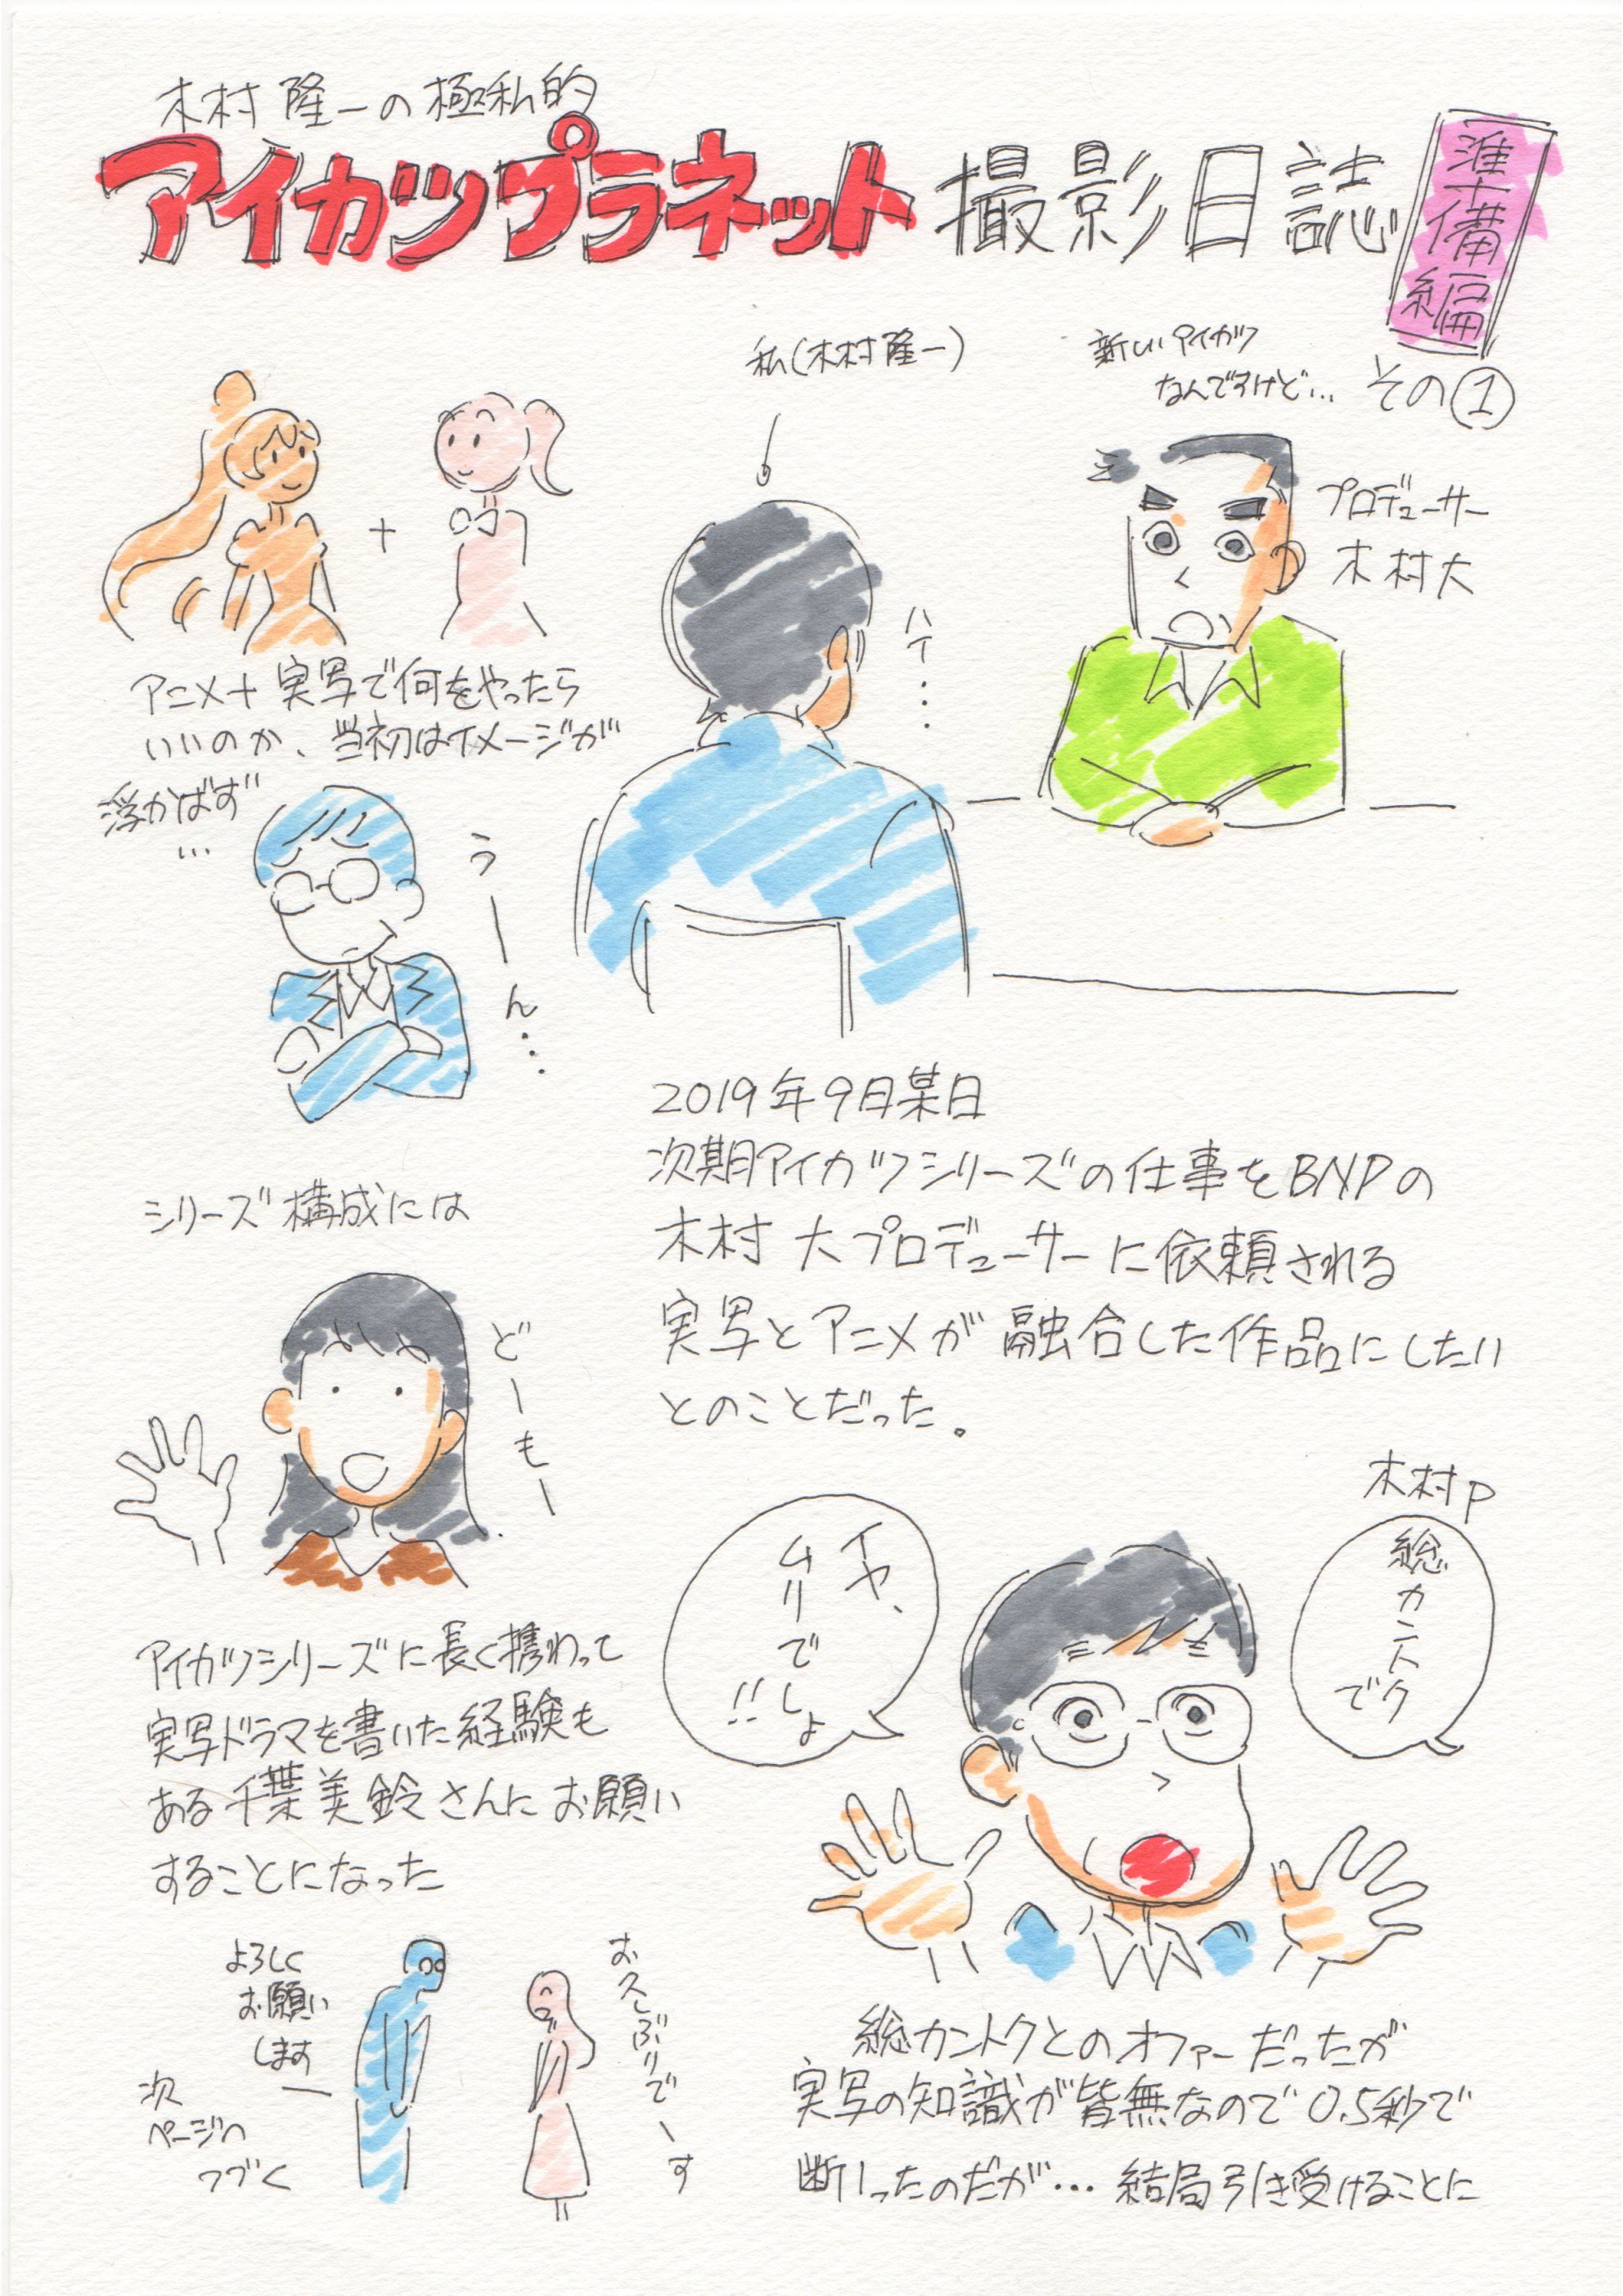 木村隆一の極私的
アイカツプラネット撮影日誌
準備編
その①
新しいアイカツ
なんですけど…
プロデューサー
木村大
私(木村隆一)
ハイ…
2019年9月某日
次期アイカツシリーズの仕事をBNPの
木村大プロデューサーに依頼される
実写とアニメが融合した作品にしたい
とのことだった。
木村P
総カントクで
イヤ、
ムリでしょ
!!
総カントクとのオファーだったが
実写の知識が皆無なので0.5秒で
断ったのだが…結局引き受けることに
+
アニメ+実写で何をやったら
いいのか、当初はイメージが
浮かばず
…
うーん…
シリーズ構成には
どーもー
アイカツシリーズに長く携わって
実写ドラマを書いた経験も
ある千葉美鈴さんにお願い
することになった
よろしく
お願い
します―
お久しぶりでーす
次
ページへ
つづく